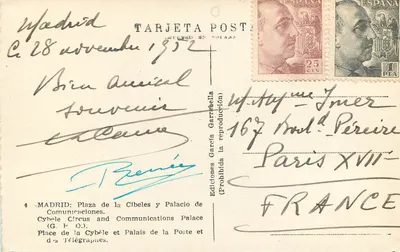 Madrid
TARJETA POSTAL
Le 28 novembre 1952
Bien amical
souvenir
ESPAÑA
25
CTS
ESPAÑA
1
PTA
Ediciones García Garrabella
(Prohibida la reproducción)
167 Boul.d Péreire
Paris XVII
FRANCE
4 -MADRID: Plaza de la Cibeles y Palacio de
Comunicaciones.
Cybele Circus and Communications Palace
(G. P. O.).
Place de la Cybèle et Palais de la Poste et
des Télégraphes.